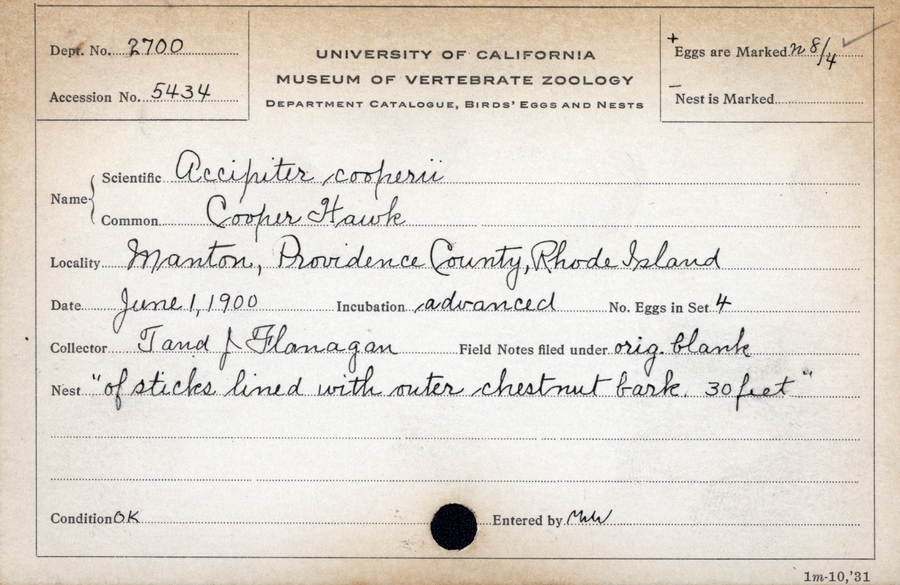 Dept. No. 2700
Accession No. 5434
UNIVERSITY OF CALIFORNIA
MUSEUM OF VERTEBRATE ZOOLOGY
DEPARTMENT CATALOGUE, BIRDS' EGGS AND NESTS
+
Eggs are Marked n 8/4 ✓
–
Nest is Marked
Name { Scientific Accipiter cooperii
Common Cooper Hawk
Locality Manton, Providence County, Rhode Island
Date June 1, 1900 Incubation advanced No. Eggs in Set 4
Collector J and J Flanagan Field Notes filed under orig. blank
Nest "of sticks lined with outer chestnut bark. 30 feet"
Condition OK Entered by
1m-10,'31